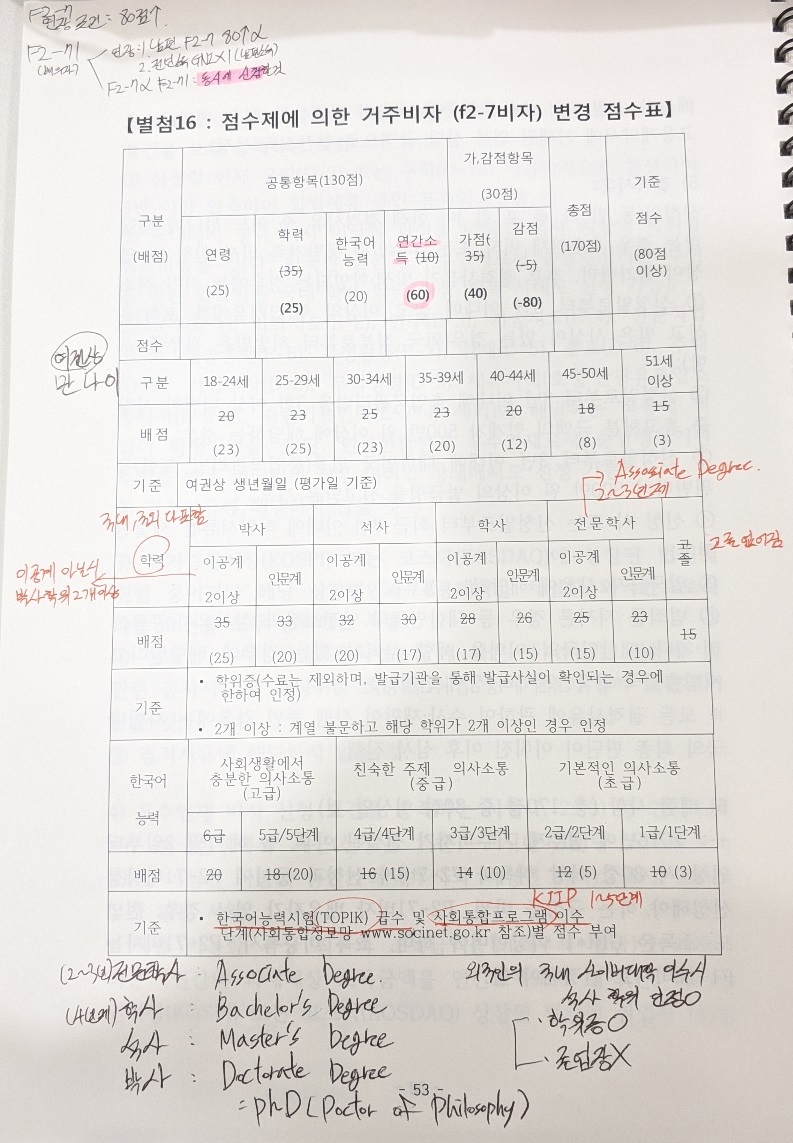 F2-7
연장 조건 = 80점↑
F2-71
(배우자)
연장: 1. 남편 F2-7 80↑ α
2. 전년소득 GNI×1 (남편소득)
F2-7 α F2-71 : 동시에 신청한것
【별첨16 : 점수제에 의한 거주비자 (f2-7비자) 변경 점수표】
구분 (배점) 공통항목(130점) 가,감점항목 (30점) 총점 (170점) 기준 점수 (80점 이상)
연령 (25) 학력 (35) (25) 한국어 능력 (20) 연간소득 (10) (60) 가점(35) (40) 감점 (-5) (-80)
점수
여권상
만 나이
구분 18-24세 25-29세 30-34세 35-39세 40-44세 45-50세 51세 이상
배점 20 23 25 23 20 18 15
(23) (25) (23) (20) (12) (8) (3)
기준 여권상 생년월일 (평가일 기준)
→ Associate Degree.
2~3년제
국내, 국외 다포함
학력 박사 석사 학사 전문학사 고졸
고졸 없어짐
이공계 2이상 인문계 이공계 2이상 인문계 이공계 2이상 인문계 이공계 2이상 인문계
이공계 아닐시
박사학위 2개 이상
배점 35 33 32 30 28 26 25 23 15
(25) (20) (20) (17) (17) (15) (15) (10)
기준
• 학위증(수료는 제외하며, 발급기관을 통해 발급사실이 확인되는 경우에
한하여 인정)
• 2개 이상 : 계열 불문하고 해당 학위가 2개 이상인 경우 인정
한국어 능력 사회생활에서 충분한 의사소통 (고급) 친숙한 주제 의사소통 (중급) 기본적인 의사소통 (초급)
6급 5급/5단계 4급/4단계 3급/3단계 2급/2단계 1급/1단계
배점 20 18 (20) 16 (15) 14 (10) 12 (5) 10 (3)
KIIP 1~5단계
기준 • 한국어능력시험(TOPIK) 급수 및 사회통합프로그램 이수
단계(사회통합정보망 www.socinet.go.kr 참조)별 점수 부여
(2~3년)전문학사 : Associate Degree.
(4년제)학사 : Bachelor's Degree
석사 : Master's Degree
박사 : Doctorate Degree
= phD (Doctor of Philosophy)
외국인의 국내 사이버대학 이수시
학위 인정O
· 학위증O
· 졸업장X
- 53 -